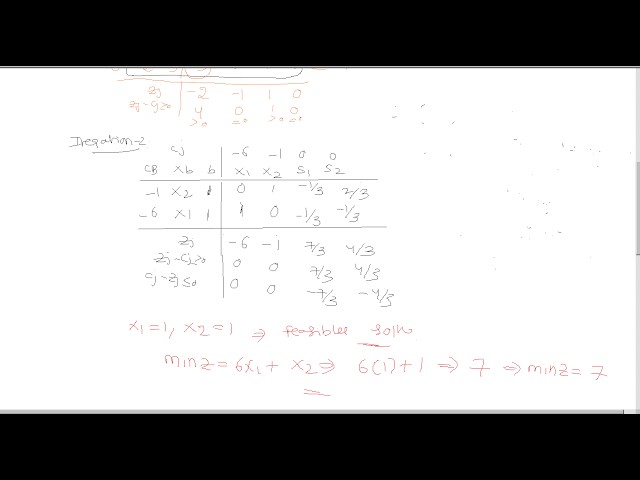 zj -2 -1 1 0
zj-cj≥0 4 0 1 0
>0 =0 >0 =0
Iteration-2
cj -6 -1 0 0
CB Xb b X1 X2 S1 S2
-1 X2 1 0 1 -1/3 2/3
-6 X1 1 1 0 -1/3 -1/3
zj -6 -1 7/3 4/3
zj-cj≥0 0 0 7/3 4/3
cj-zj≤0 0 0 -7/3 -4/3
X1=1, X2=1 ⇒ feasibles soln.
min z = 6x1 + x2 ⇒ 6(1)+1 ⇒ 7 ⇒ min z = 7